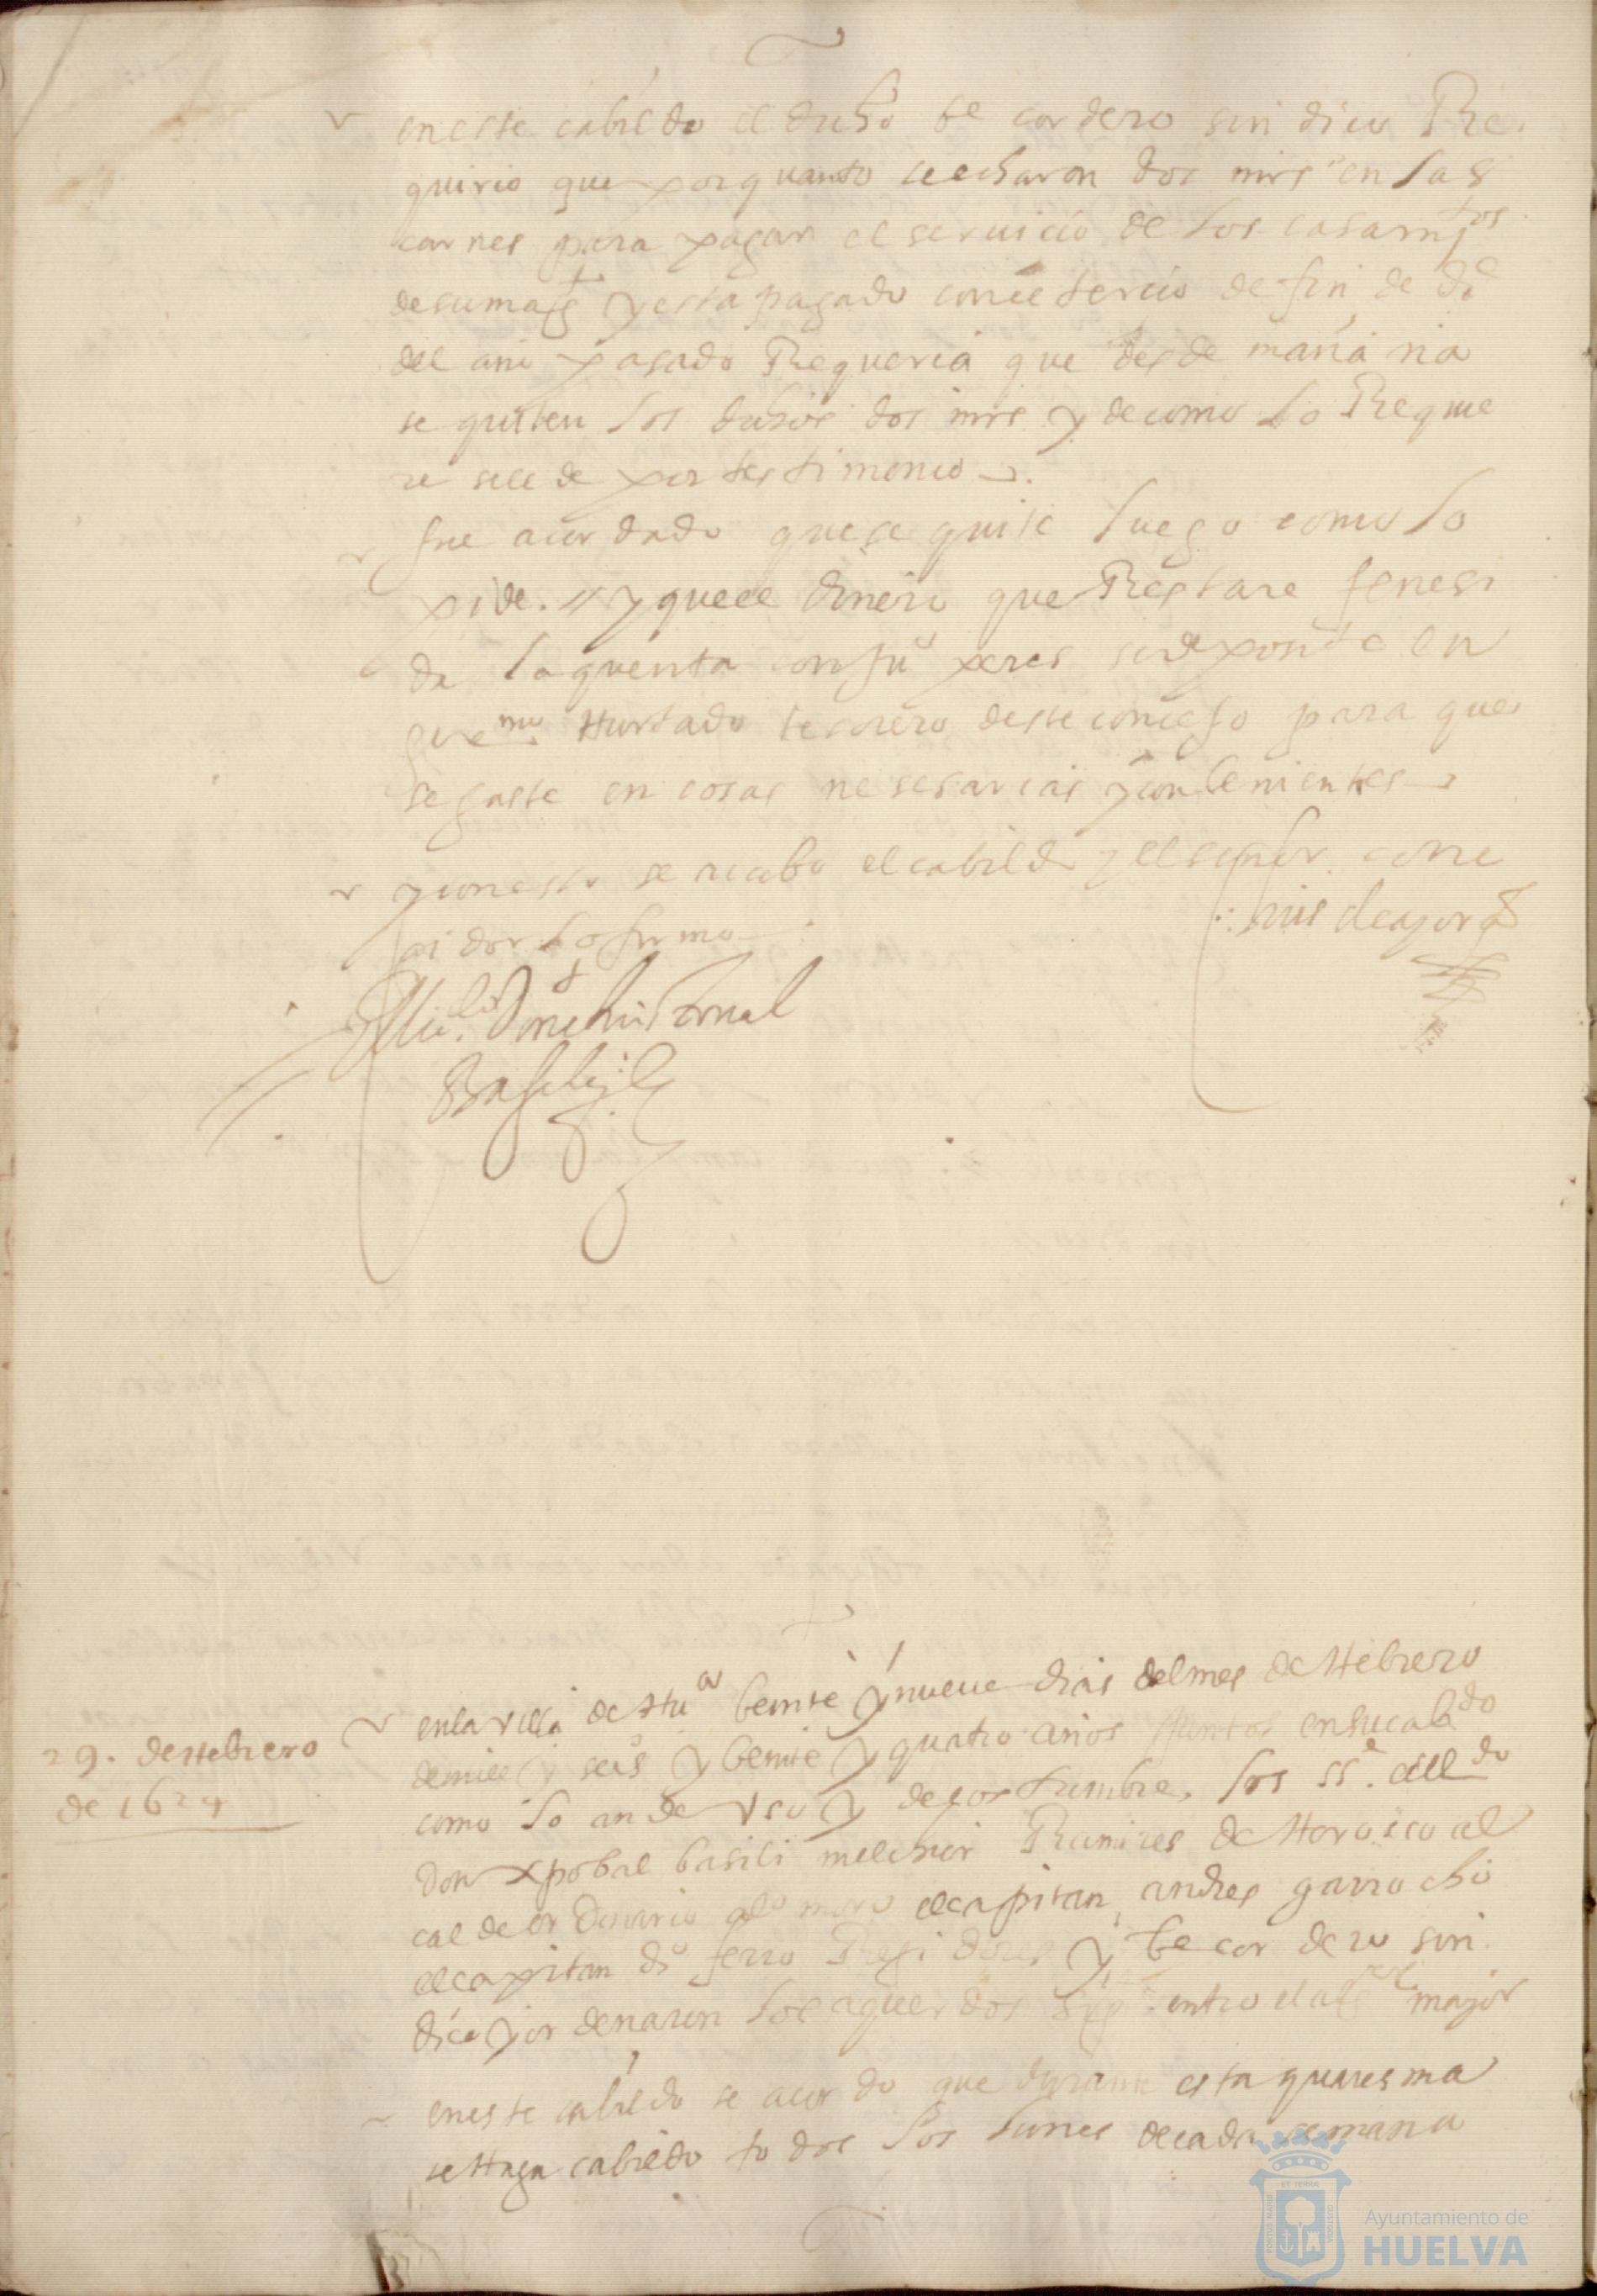 en este cabildo el dicho be cordero sindico Re
quirio que por quanto se echaron dos mrs en las
carnes para pagar el seruicio de los casamtos
de su magt y esta pagado con el tercio de fin de de
del año pasado Requeria que desde mañana
se quiten los dichos dos mrs y de como lo Reque
re se le de por testimonio
fue acordado que se quite luego como lo
pide. // y que el dinero que Restare fenesi
da la quenta con juo peres se deposite en
germo Hurtado tesorero deste consejo para que
se gaste en cosas nesesarias y conbenientes
y con esto se acabo el cabildo y el señor corre
gidor lo firmo
Basili
en la villa de Hua beinte y nueue dias del mes de Hebrero
29. de Hebrero
de 1624
de mill y seis y beinte y quatro años juntos en su cabdo
como lo an de vso y de costumbre, los ss. el ldo
don xpobal basili melchor Ramires de Horosco al
calde ordinario alo moro el capitan andres garrocho
el capitan do ferro Regidores y be cordero sin
dico y ordenaron los aquerdos entro el mayor
en este cabildo se acordo que durante esta quaresma
se Haga cabildo todos los lunes de cada semana
Ayuntamiento de
HUELVA